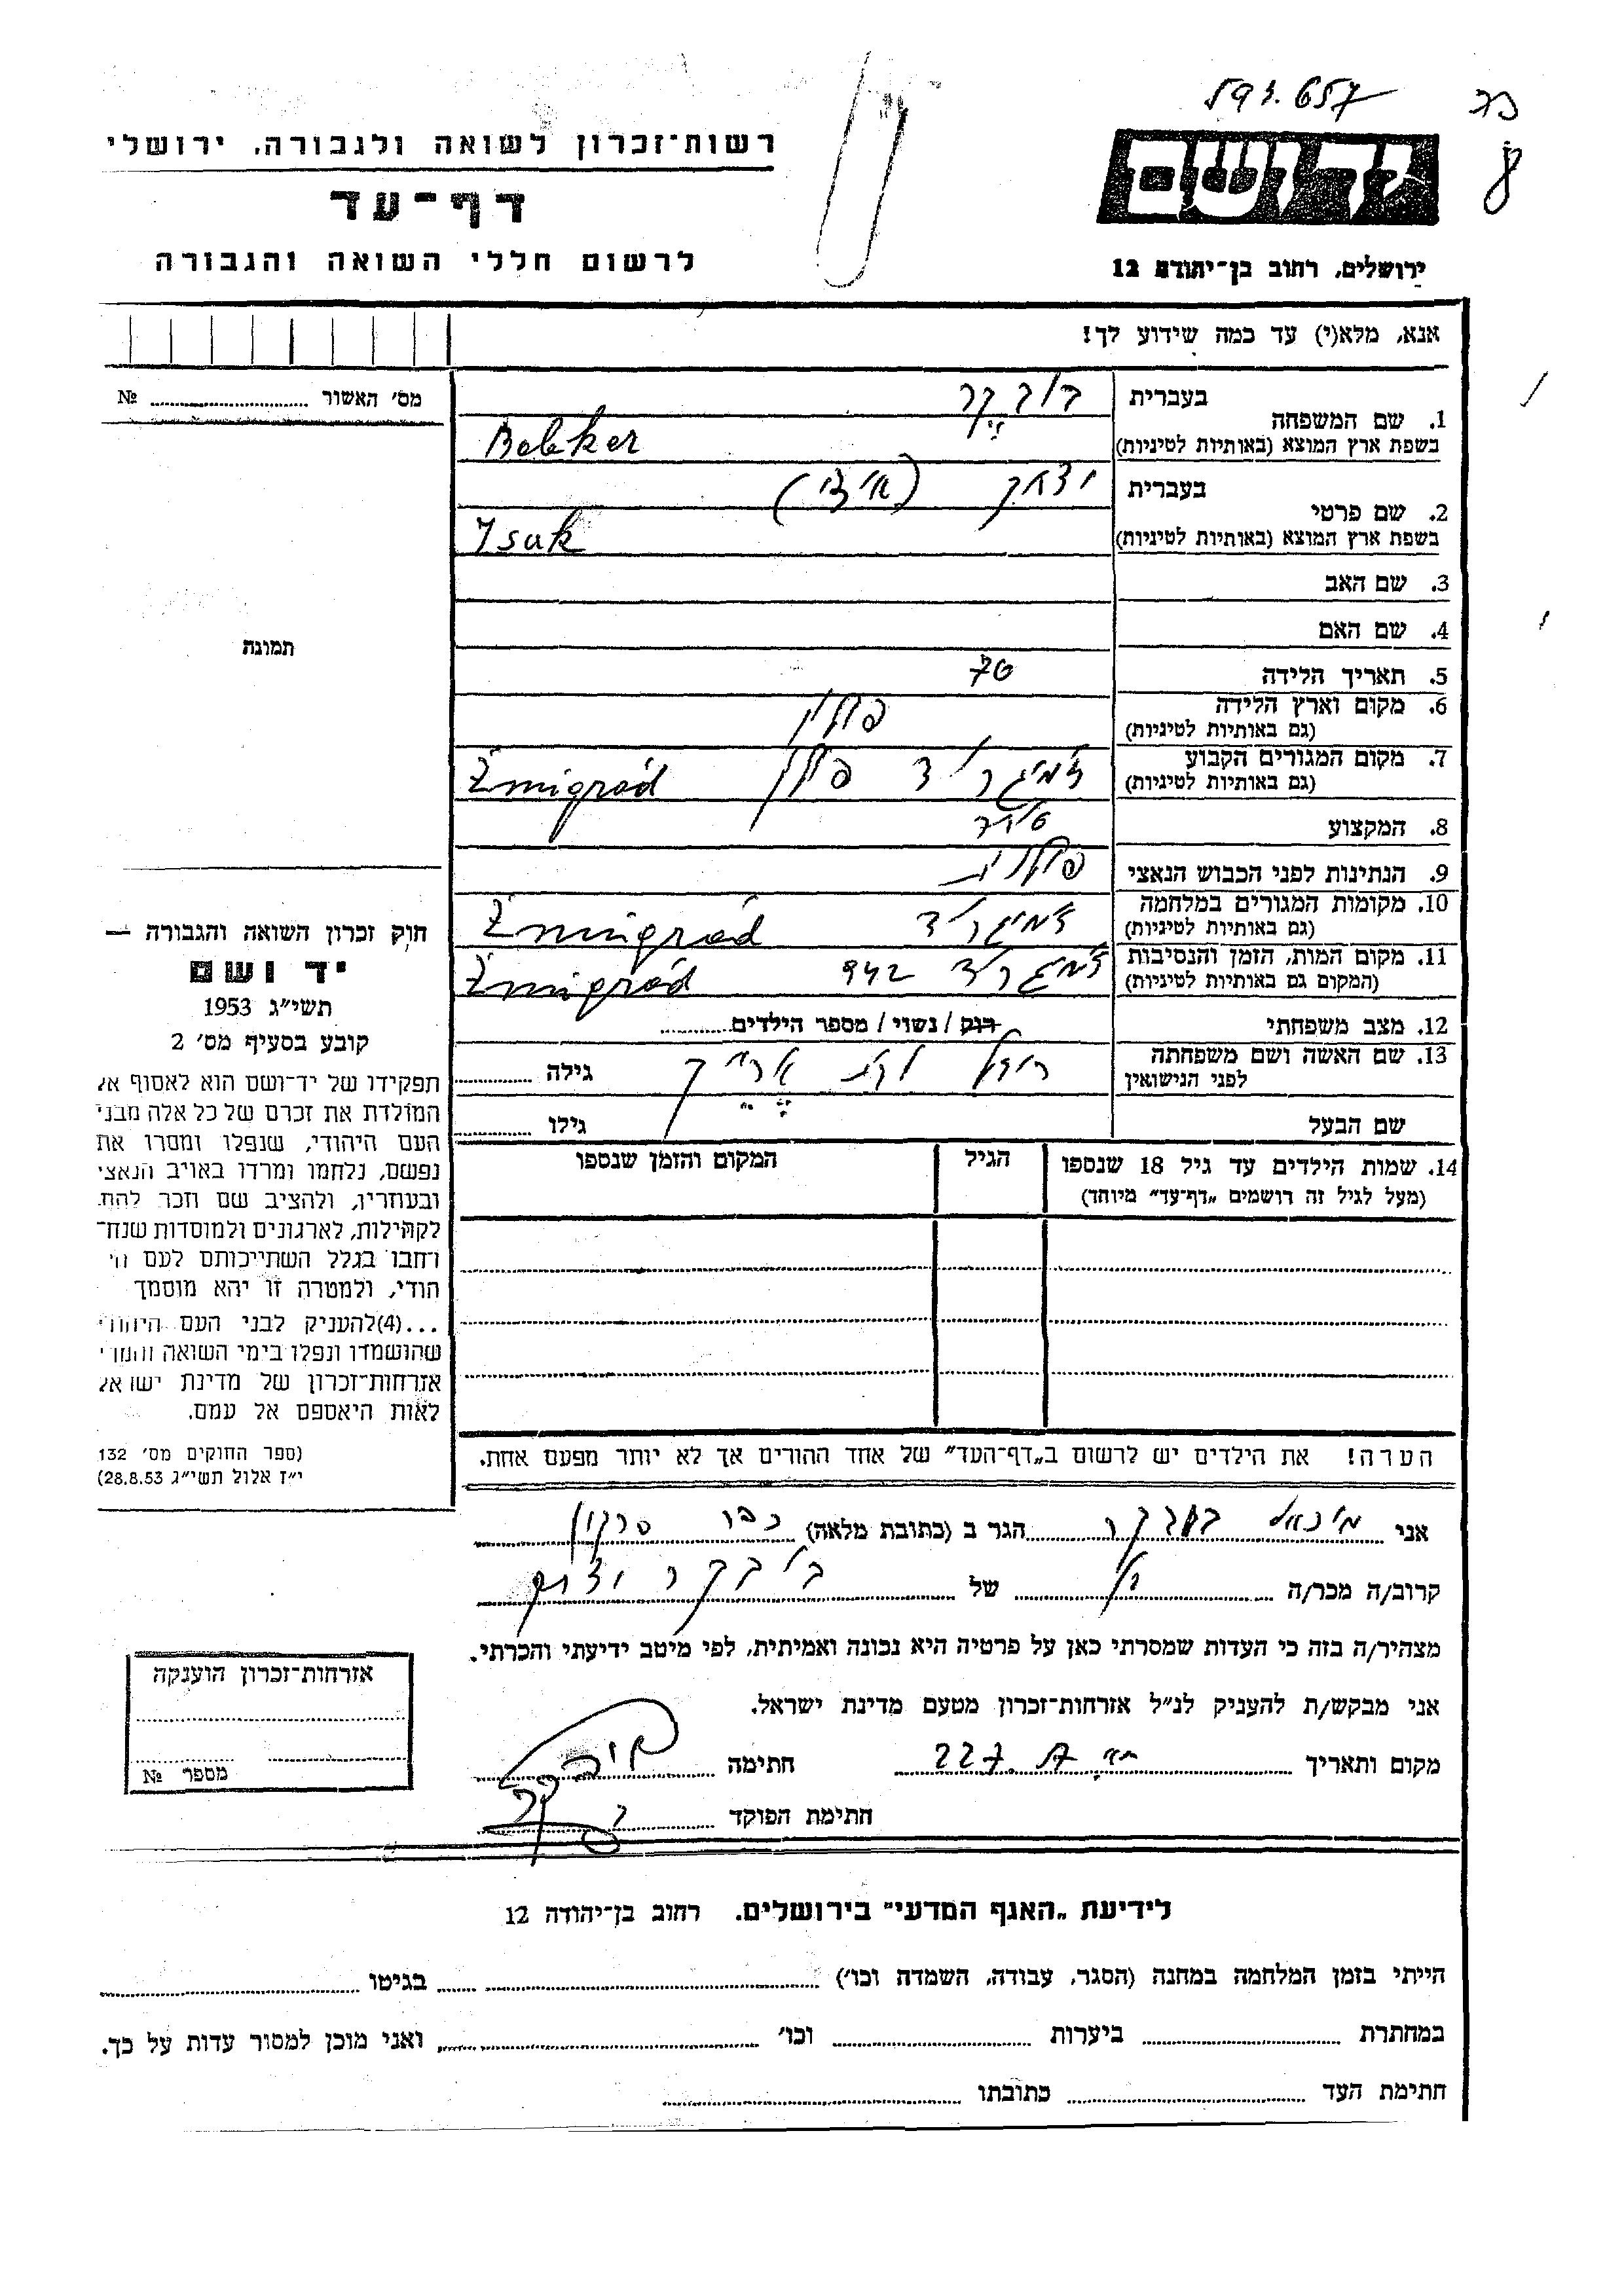 593.657
8
רשות־זכרון לשואה ולגבורה, ירושלי
דף־עד
לרשום חללי השואה והגבורה
ירושלים, רחוב בן־יהודה 12
אנא, מלא(י) עד כמה שידוע לך!
מס׳ האשור № 
1. שם המשפחה
בעברית
בשפת ארץ המוצא (באותיות לטיניות) Bobker
2. שם פרטי
בעברית יצחק (איצי)
בשפת ארץ המוצא (באותיות לטיניות) Isak
3. שם האב
4. שם האם
5. תאריך הלידה 70
6. מקום וארץ הלידה
(גם באותיות לטיניות) פולין
7. מקום המגורים הקבוע
(גם באותיות לטיניות) ז׳מיגרוד פולין Żmigród
8. המקצוע סוחר
9. הנתינות לפני הכבוש הנאצי פולנית
10. מקומות המגורים במלחמה
(גם באותיות לטיניות) ז׳מיגרוד Żmigród
11. מקום המות, הזמן והנסיבות
(המקום גם באותיות לטיניות) ז׳מיגרוד 942 Żmigród
12. מצב משפחתי רוק / נשוי / מספר הילדים
13. שם האשה ושם משפחתה
לפני הנישואין גילה
שם הבעל גילו
14. שמות הילדים עד גיל 18 שנספו
(מעל לגיל זה רושמים „דף־עד״ מיוחד)
הגיל
המקום והזמן שנספו
הערה! את הילדים יש לרשום ב„דף־העד״ של אחד ההורים אך לא יותר מפעם אחת.
תמונה
חוק זכרון השואה והגבורה —
יד ושם
תשי״ג 1953
קובע בסעיף מס׳ 2
תפקידו של יד־ושם הוא לאסוף אל
המולדת את זכרם של כל אלה מבני
העם היהודי, שנפלו ומסרו את
נפשם, נלחמו ומרדו באויב הנאצי
ובעוזריו, ולהציב שם וזכר להם,
לקהילות, לארגונים ולמוסדות שנח־
רחבו בגלל השתייכותם לעם הי
הודי, ולמטרה זו יהא מוסמך
...(4) להעניק לבני העם היהודי
שהושמדו ונפלו בימי השואה והמרי
אזרחות־זכרון של מדינת ישראל
לאות היאספם אל עמם.
(ספר החוקים מס׳ 132
י״ז אלול תשי״ג 28.8.53)
אני מיכאל הגר ב (כתובת מלאה) כפר סרקין
קרוב/ה מכר/ה של יצחק
מצהיר/ה בזה כי העדות שמסרתי כאן על פרטיה היא נכונה ואמיתית, לפי מיטב ידיעתי והכרתי.
אני מבקש/ת להעניק לנ״ל אזרחות־זכרון מטעם מדינת ישראל.
מקום ותאריך חתימה
חתימת הפוקד
אזרחות־זכרון הוענקה
מספר №
לידיעת „האגף המדעי״ בירושלים. רחוב בן־יהודה 12
הייתי בזמן המלחמה במחנה (הסגר, עבודה, השמדה וכו׳) בגיטו
במחתרת ביערות וכו׳ ואני מוכן למסור עדות על כך.
חתימת העד כתובתו